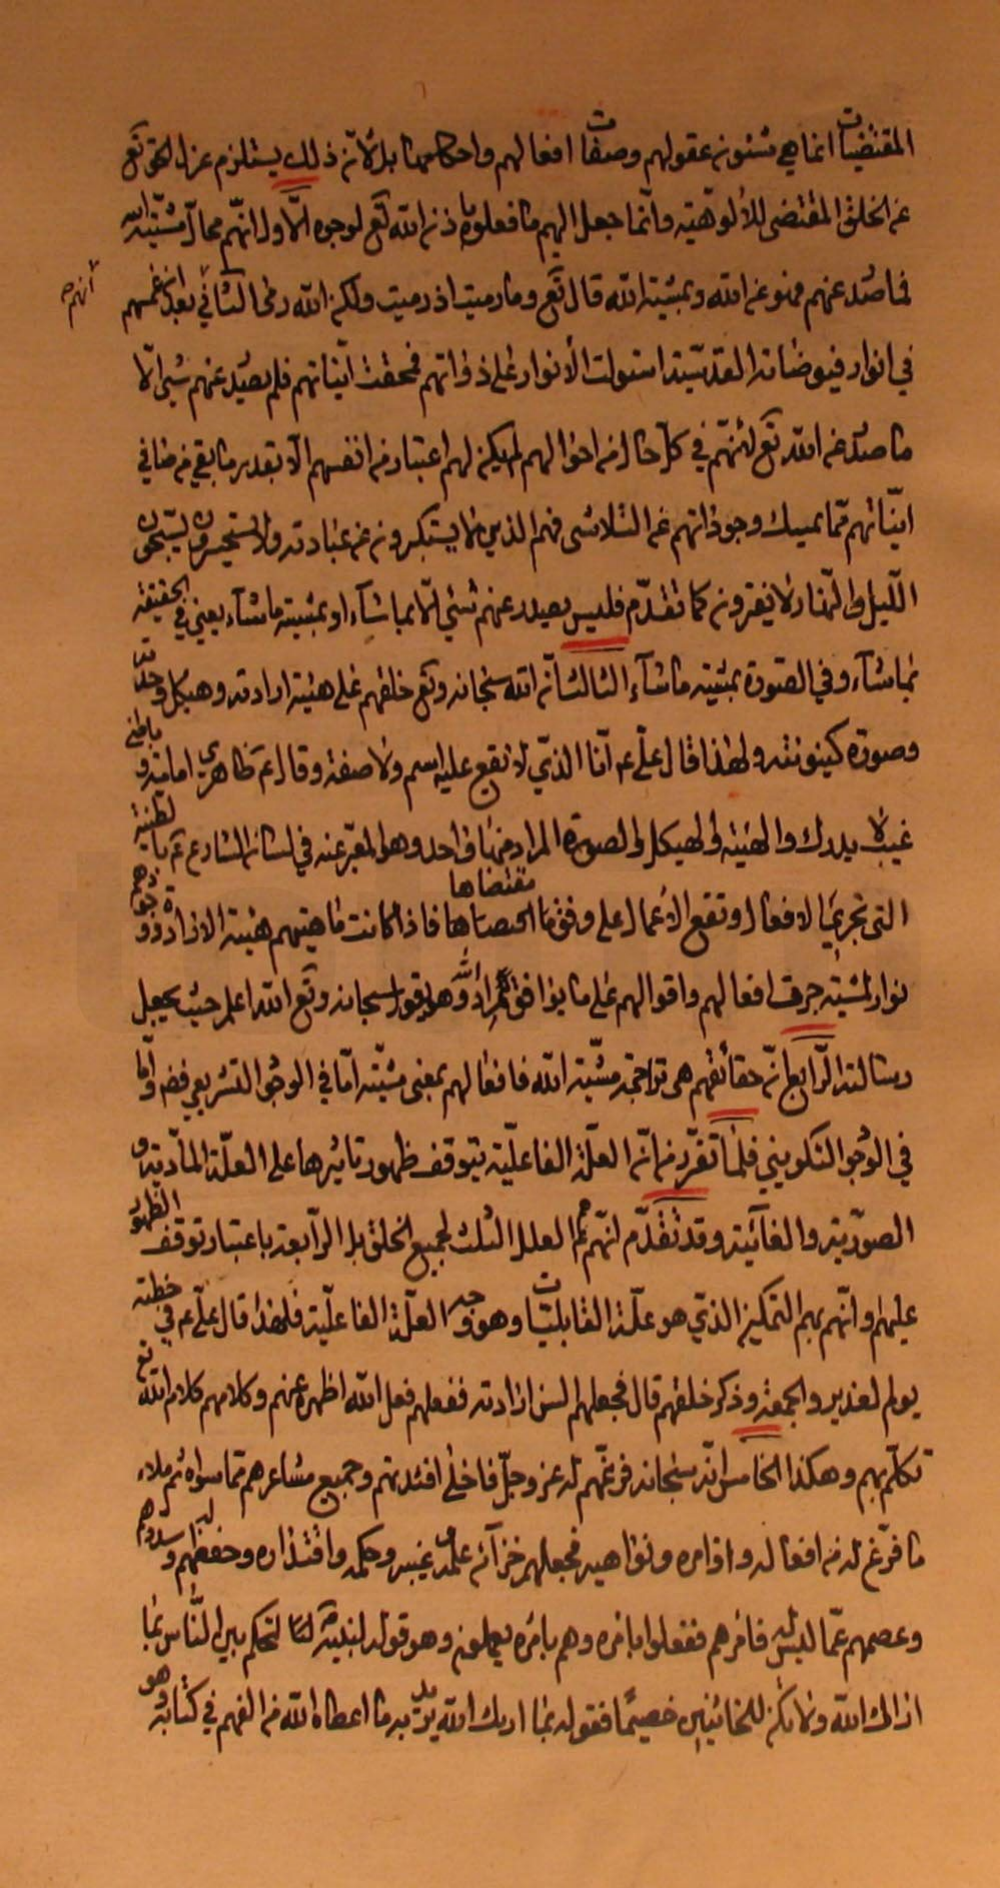 المقتضيات انما هي شئون عقولهم وصفات افعالهم واحكامها بل لانّ ذلك يستلزم عزل الحق تع
عن الخلق المقتضى للألوهيّة وانّما جعل اليهم ما فعلوه باذن الله تع لوجوه الاوّل انّهم محالّ مشيّة الله
فما صدر عنهم فهو عن الله وبمشية الله قال تع وما رميت اذ رميت ولكن الله رمى الثاني انهم بعد ان غمسهم
في انوار فيوضاته القدسيّة استولت الأنوار على ذواتهم فمحقت انّياتهم فلم يصدر عنهم شيئ الّا
ما صدر عن الله تع لأنهّم في كلّ حال من احوالهم لم يكن لهم اعتبار من انفسهم الا بقدر ما بقي من
انّياتهم ممّا يمسك وجوداتهم عن التلاشى فهم الذين لا يستكبرون عن عبادته ولا يستحسرون يسبّحون
اللّيل والنّهار لا يفترون كما تقدّم فليس يصدر عنهم شئ الّا بما شآء او بمشية ما شآء يعني في الحقيقة
بما شآء وفي الصّورة بمشية ما شآء الثالث انّ الله سبحانه وتع خلقهم على هيئة ارادته وهيكل توحيده
وصورة كينونته ولهذا قال علّي ع انا الذّي لا يقع عليه اسم ولا صفة وقال ع ظاهري امامة وباطني
غيب لا يدرك والهيئة والهيكل والصورة المراد منها واحد وهو المعبّر عنه في لسان الشارع ع بالطينة
التى تجري الافعال وتقع الاعمال على وفق مقتضاها فاذا كانت ماهيتهم هيئة الارادة ووجودهم
نوار المشيّة جرت افعالهم واقوالهم على ما يوافق مراد الله وهو يقول سبحانه وتع الله اعلم حيث يجعل
رسالته الرّابع انّ حقائقهم هى تراجمة مشيّة الله فافعالهم بمعنى مشيّته امّا في الوجود التشريعي وامّا
في الوجود التكويني فلما تقرّر من انّ العلّة الفاعليّة يتوقف ظهور تاثيرها على العلّة المادّية و
الصوّرية والغآئية وقد تقدّم انّهم هم العلل الثلث لجميع الخلق بل الرّابعة باعتبار توقف الظهور
عليهم وانّهم بهم التمكين الذّي هو علّة القابليّات وهو وجه العلّة الفاعليّة فلهذا قال علّي ع في خطبة
يوم الغدير والجمعة وذكر خلقهم قال فجعلهم السن ارادته ففعلهم فعل الله اظهره عنهم وكلامهم كلام الله تع
تكلّم بهم وهكذا الخامس انّه سبحانه فرغهم له عز وجلّ فاخلى افئدتهم وجميع مشاعرهم ممّا سواه ثم ملاء
ما فرّغ له من افعاله واوامره ونواهيه فجعلهم خزآئن علمه و غيبه وحكمه واقتداره وحفظهم وسددهم
وعصمهم عمّا ليس له فامرهم ففعلوا بامره وهم بامره يعملون وهو قوله لنبيّه ص لتحكم بين النّاس بما
اراك الله ولا تكن للخائنين خصيمًا فقوله بما اريك الله يريد به ما اعطاه الله من الفهم في كتابه وهو